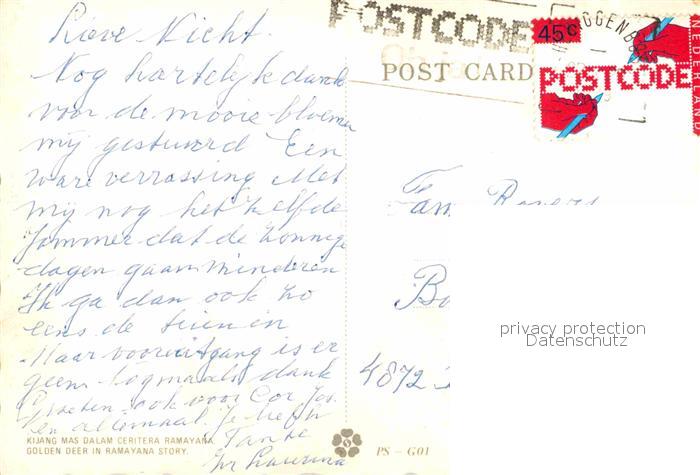 Lieve Nicht.
Nog hartelijk dank
voor de mooie bloemen
mij gestuurd Een
ware verrassing Met
mij nog het zelfde
Jammer dat de zonnige
dagen gaan minderen
Ik ga dan ook zo
eens de trein in
Maar vooruitgang is er
geen. Nogmaals dank
Groeten ook voor Cor, Jos
en allemaal. Je liefh
Tante
KIJANG MAS DALAM CERITERA RAMAYANA
GOLDEN DEER IN RAMAYANA STORY.
POSTCODE
POST CARD
45c
POSTCODE
NEDERLAND
Fam
4872
privacy protection
Datenschutz
PS – G01